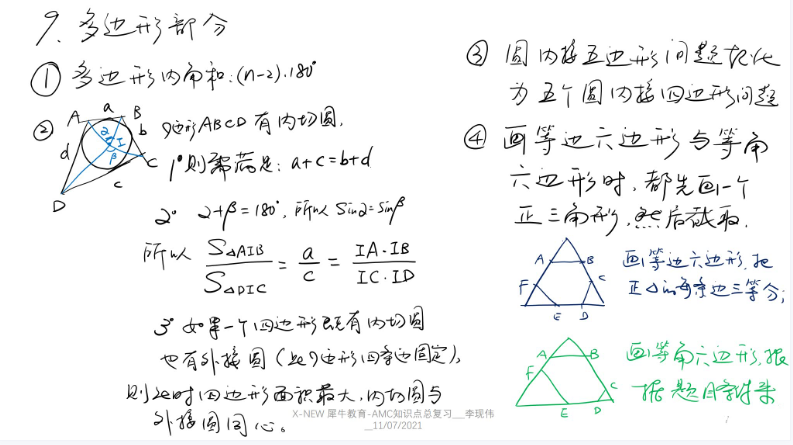 9、多边形部分
① 多边形内角和:(n-2)·180°
②
A a B
d α I b
β
c C
D
四边形ABCD有内切圆,
1° 则需满足: a+c=b+d
2° α+β=180°, 所以 Sinα=Sinβ
所以 S△AIB / S△DIC = a/c = IA·IB / IC·ID
3° 如果一个四边形既有内切圆
也有外接圆(此四边形四条边固定),
则此时四边形面积最大,内切圆与
外接圆同心。
③ 圆内接五边形问题转化
为五个圆内接四边形问题
④ 画等边六边形与等角
六边形时,都先画一个
正三角形,然后截取.
A B
F C
E D
画等边六边形,把
正△的每条边三等分;
A B
F C
E D
画等角六边形,根
据题目条件来
X-NEW 犀牛教育-AMC知识点总复习__李现伟
__11/07/2021